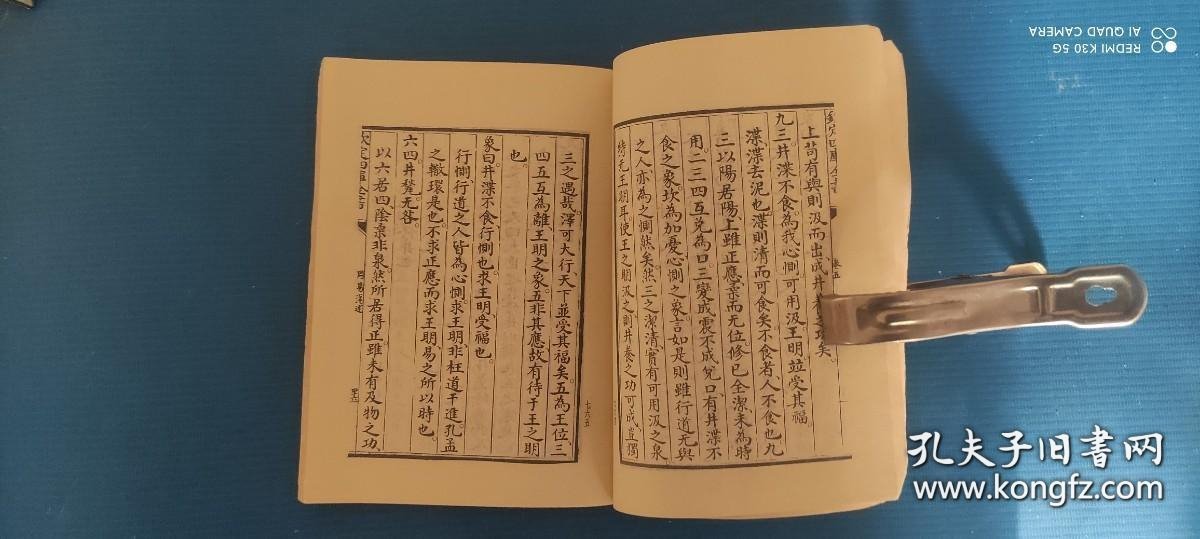 上苟有與則汲而出成井養之功矣
九三井渫不食為我心惻可用汲王明竝受其福
渫渫去泥也渫則清而可食矣不食者人不食也九
三以陽居陽上雖正應柔而无位修已全潔未為時
用二三四互兌為口三變成震不成兌口有井渫不
食之象坎為加憂心惻之象言如是則雖行道无與
之人亦為之惻然矣然三之潔清實有可用汲之泉
待元王明耳使王之明汲之則井養之功可成豈獨
三之遇哉澤可大行天下並受其福矣五為王位三
四五互為離王明之象五非其應故有待于王之明
也
象曰井渫不食行惻也求王明受福也
行惻行道之人皆為心惻求王明非枉道干進孔孟
之轍環是也不求正應而求王明易之所以時也
六四井甃无咎
以六居四陰柔非泉然所居得正雖未有及物之功
欽定四庫全書
卷五
七六五
REDMI K30 5G
AI QUAD CAMERA
孔夫子旧書网
www.kongfz.com